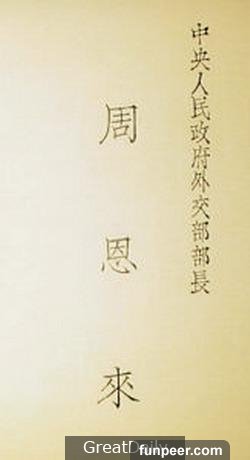 中央人民政府外交部部長
周恩來
GreatDaily
funpeer.com